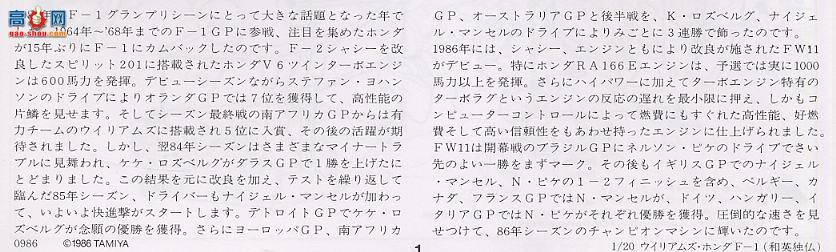 高网
F－1グランプリシーンにとって大きな話題となった年で
1964年～'68年までのF－1GPに参戦、注目を集めたホンダ
が15年ぶりにF－1にカムバックしたのです。F－2シャシーを改
良したスピリット201に搭載されたホンダV6ツインターボエンジ
ンは600馬力を発揮。デビューシーズンながらステファン・ヨハン
ソンのドライブによりオランダGPでは7位を獲得して、高性能の
片鱗を見せます。そしてシーズン最終戦の南アフリカGPからは有
力チームのウイリアムズに搭載され5位に入賞、その後の活躍が期
待されました。しかし、翌84年シーズンはさまざまなマイナートラ
ブルに見舞われ、ケケ・ロズベルグがダラスGPで1勝を上げたに
とどまりました。この結果を元に改良を加え、テストを繰り返して
臨んだ85年シーズン、ドライバーもナイジェル・マンセルが加わっ
て、いよいよ快進撃がスタートします。デトロイトGPでケケ・ロ
ズベルグが念願の優勝を獲得。さらにヨーロッパGP、南アフリカ
0986 ©1986 TAMIYA
GP、オーストラリアGPと後半戦を、K・ロズベルグ、ナイジェ
ル・マンセルのドライブによりみごとに3連勝で飾ったのです。
1986年には、シャシー、エンジンともにより改良が施されたFW11
がデビュー。特にホンダRA166Eエンジンは、予選では実に1000
馬力以上を発揮。さらにハイパワーに加えてターボエンジン特有の
ターボラグというエンジンの反応の遅れを最小限に押え、しかもコ
ンピューターコントロールによって燃費にもすぐれた高性能、好燃
費そして高い信頼性をもあわせ持ったエンジンに仕上げられました。
FW11は開幕戦のブラジルGPにネルソン・ピケのドライブでさい
先のよい一勝をまずマーク。その後もイギリスGPでのナイジェル
・マンセル、N・ピケの1－2フィニッシュを含め、ベルギー、カ
ナダ、フランスGPではN・マンセルが、ドイツ、ハンガリー、イ
タリアGPではN・ピケがそれぞれ優勝を獲得。圧倒的な速さを見
せつけて、86年シーズンのチャンピオンマシンに輝いたのです。
1
1/20 ウイリアムズ・ホンダF－1（和英独仏）